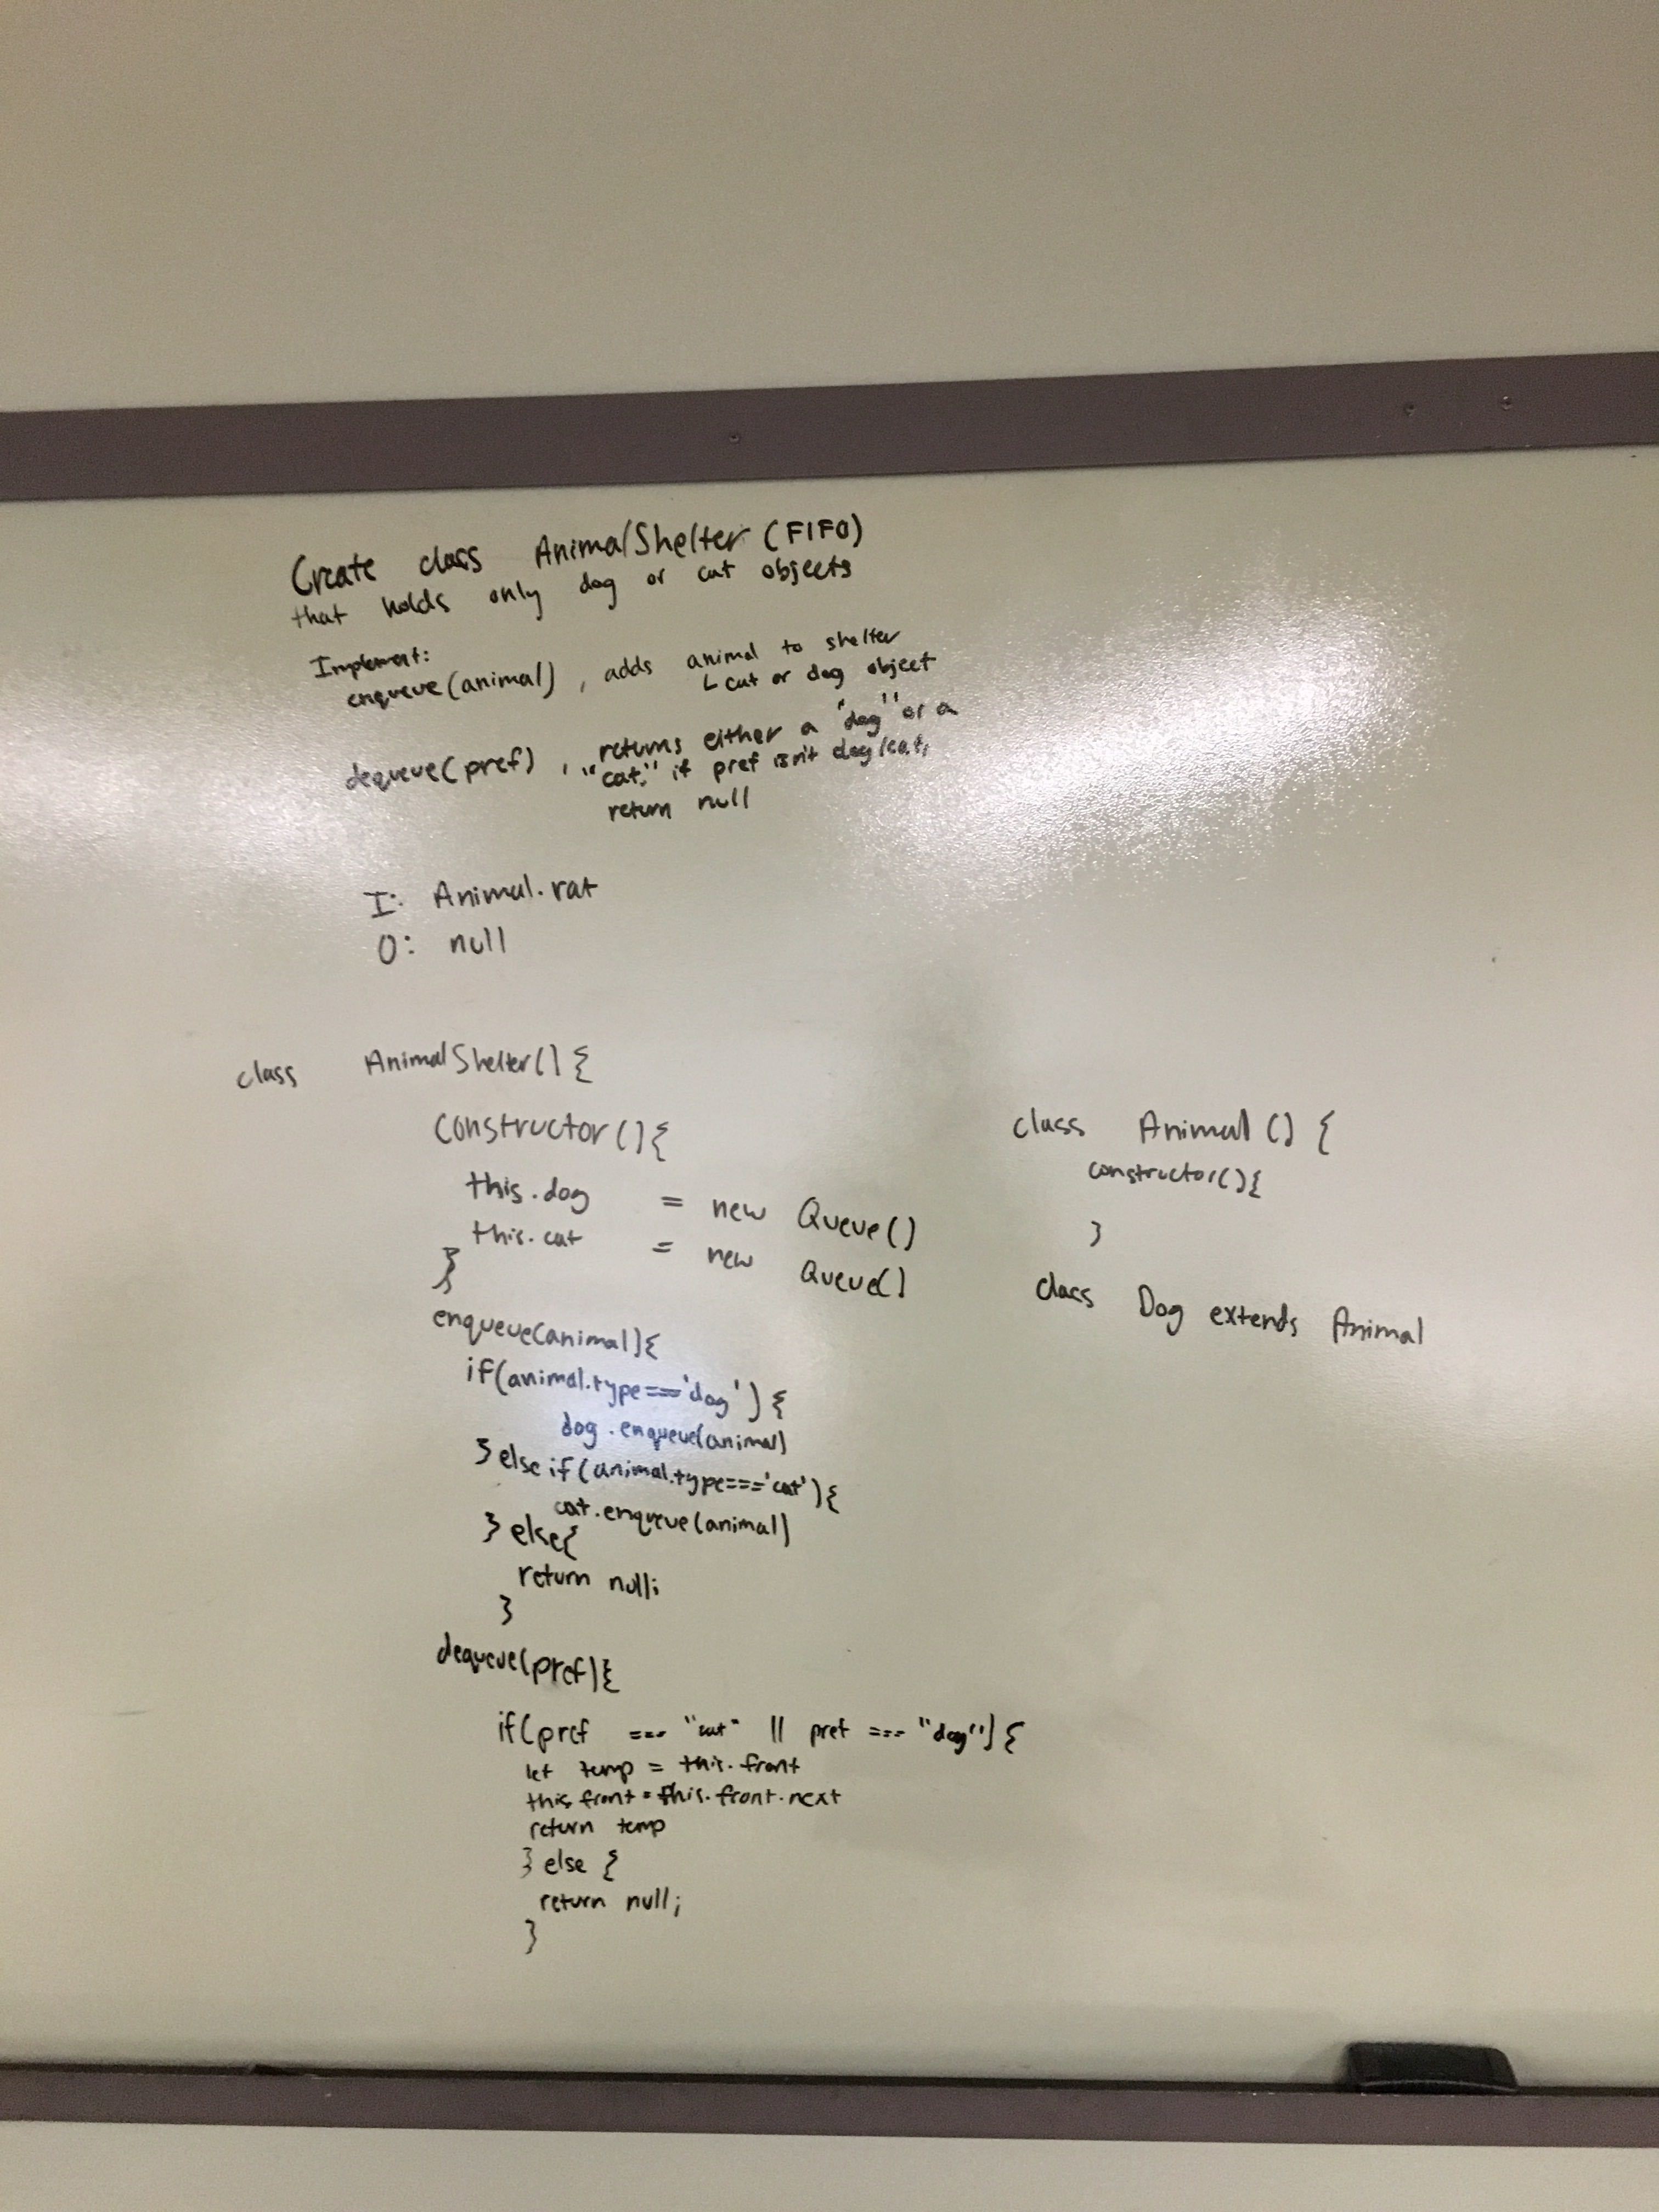 Create class AnimalShelter (FIFO)
that holds only dog or cat objects
Implement:
enqueue(animal), adds animal to shelter
↳ cat or dog object
dequeue(pref), returns either a "dog" or a
"cat." if pref isn't dog/cat,
return null
I: Animal.rat
O: null
class AnimalShelter() {
constructor(){
this.dog = new Queue()
this.cat = new Queue()
}
enqueue(animal){
if(animal.type==='dog') {
dog.enqueue(animal)
} else if(animal.type==='cat'){
cat.enqueue(animal)
} else{
return null;
}
dequeue(pref){
if(pref === "cat" || pref === "dog"){
let temp = this.front
this.front = this.front.next
return temp
} else {
return null;
}
class Animal () {
constructor(){
}
class Dog extends Animal